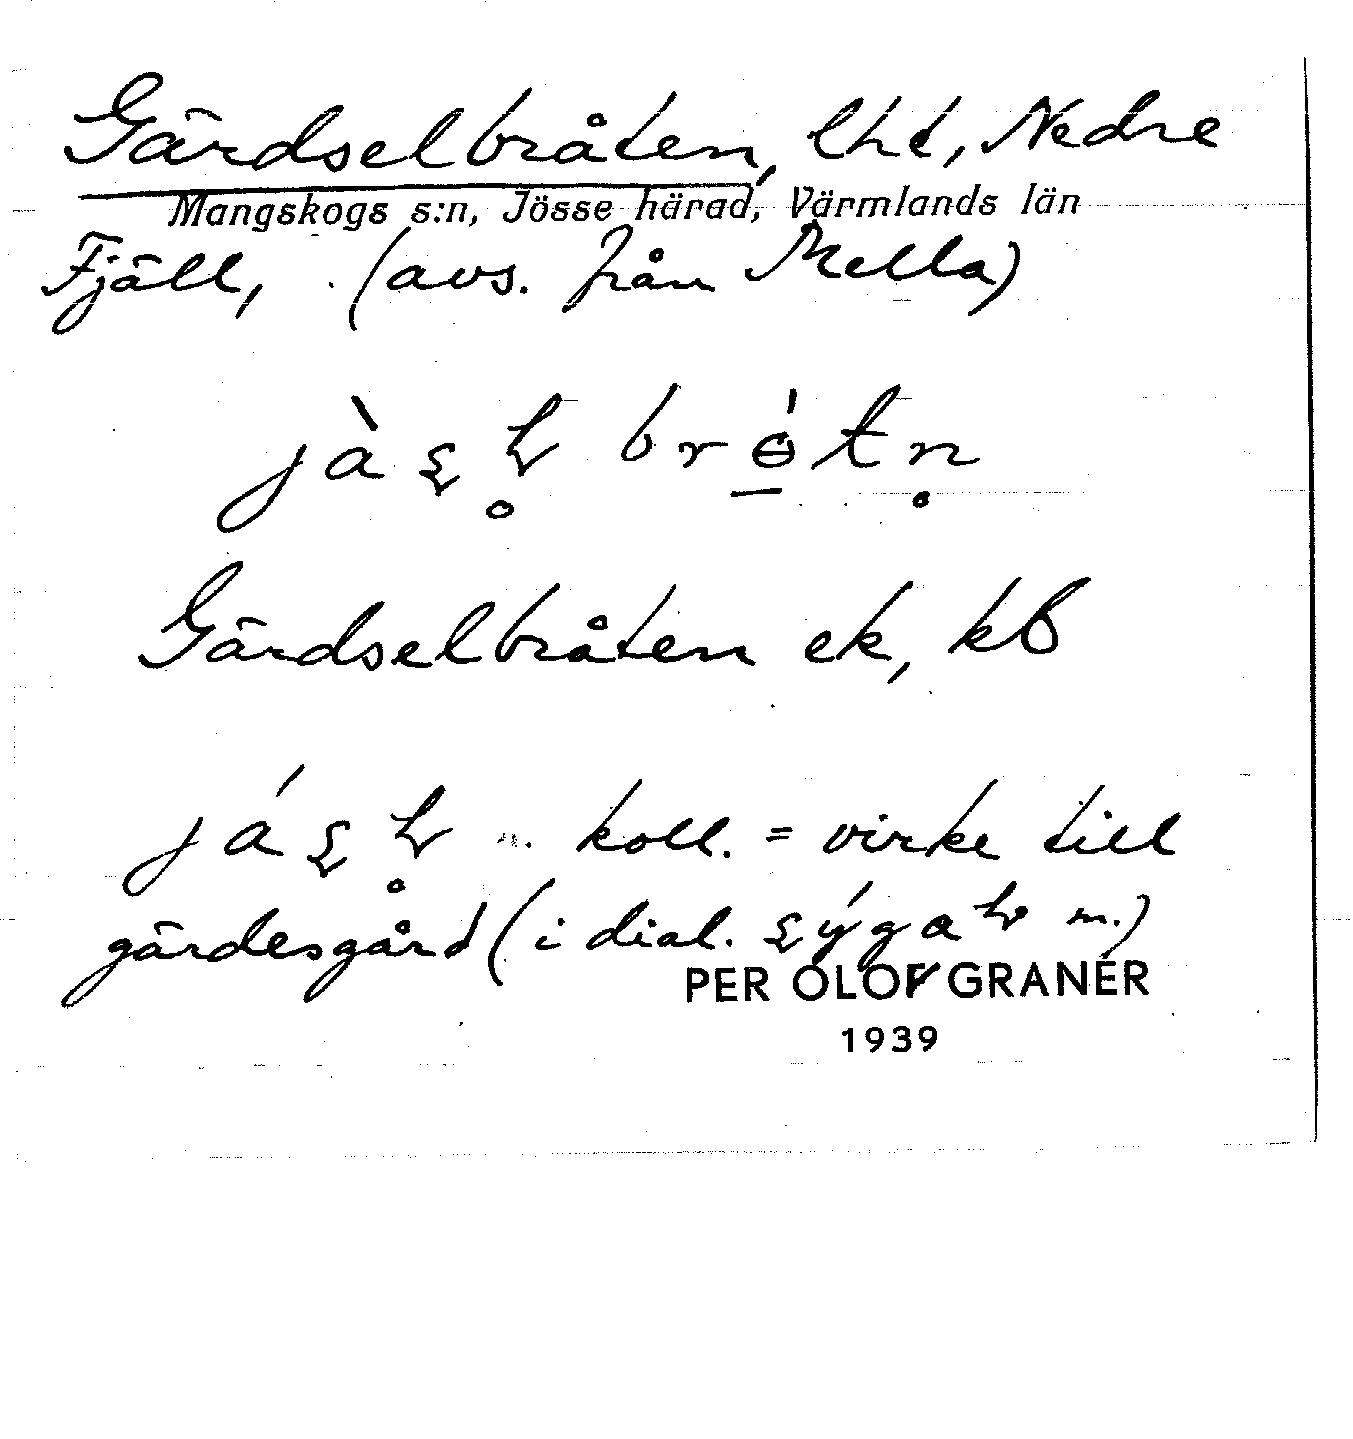 Gärdselbråten, lht, Nedre
Mangskogs s:n, Jösse härad, Värmlands län
Fjäll, (avs. från Mella)
Gärdselbråten ek, kB
koll. = virke till
gärdesgård (i dial. m.)
PER OLOF GRANÉR
1939